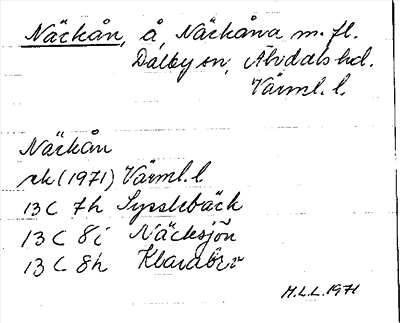 Näckån, å, Näckåna m. fl.
Dalby sn, Älvdals hd.
Värml. l.
Näckån
rk (1971) Värml. l
13 C 7h Sysslebäck
13 C 8i Näcksjön
13 C 8h Klarabro
M.L.L. 1971